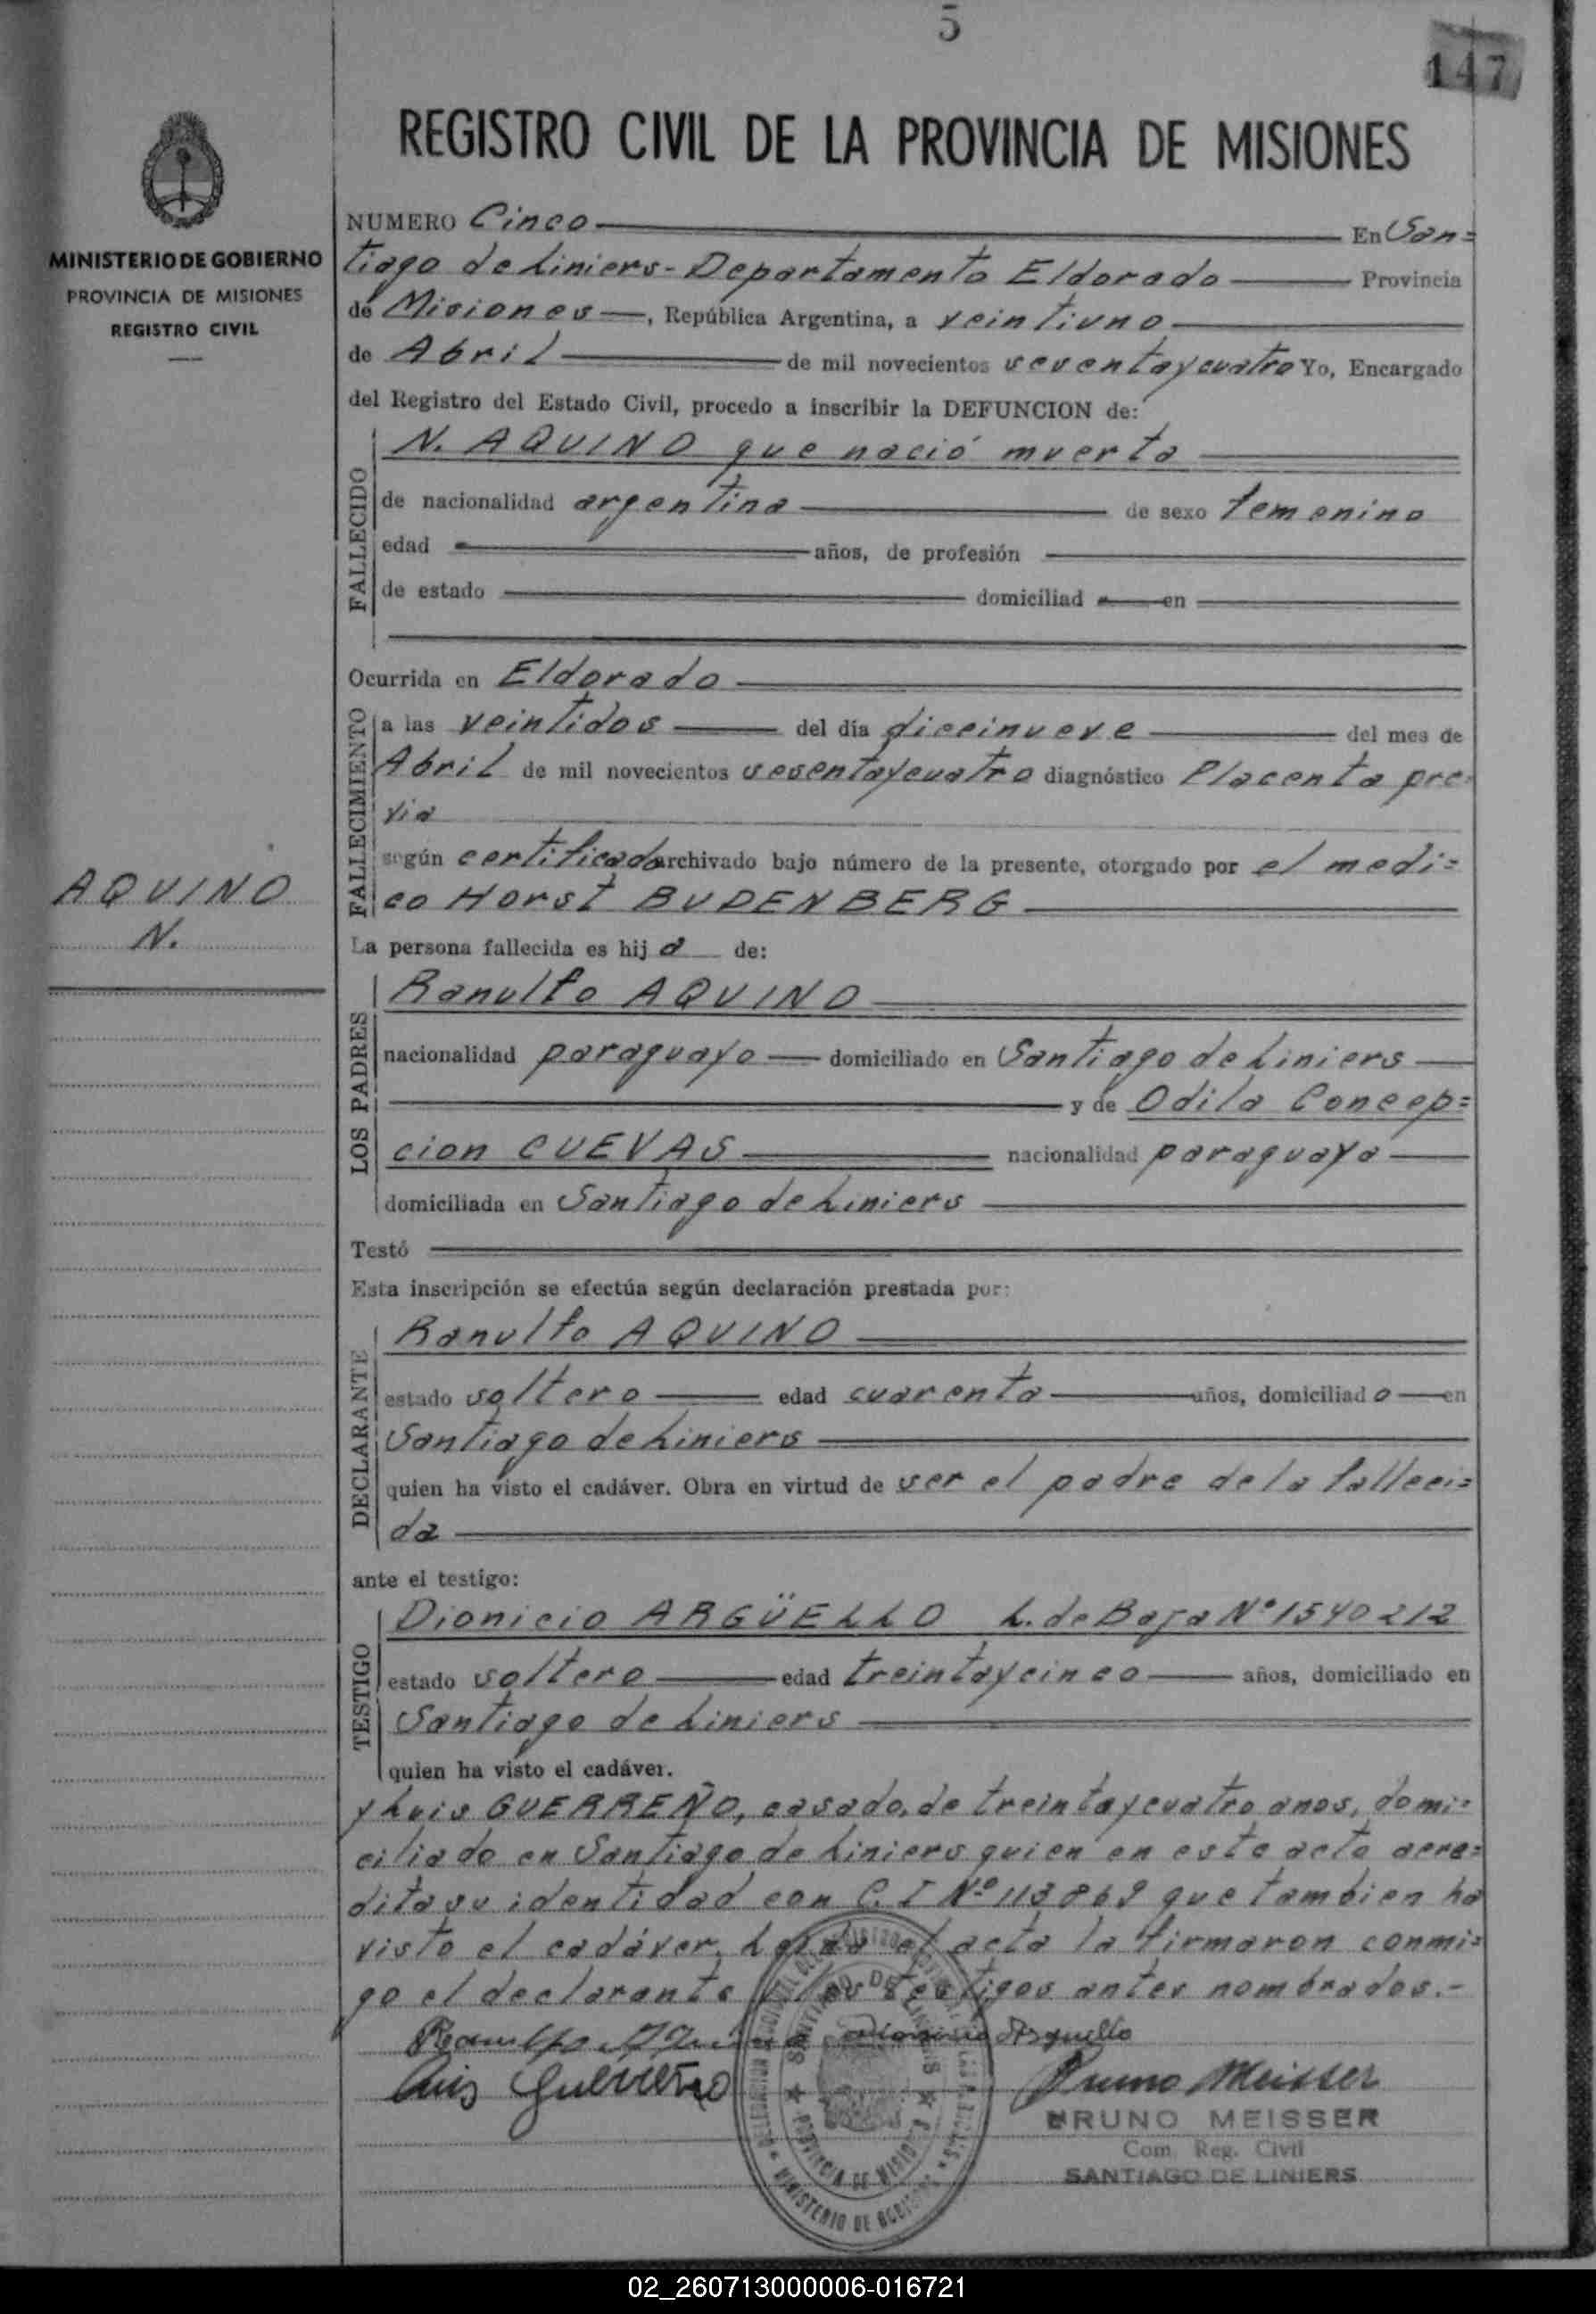 5
147
REGISTRO CIVIL DE LA PROVINCIA DE MISIONES
MINISTERIO DE GOBIERNO
PROVINCIA DE MISIONES
REGISTRO CIVIL
AQUINO
N.
NUMERO Cinco En San=
tiago de Liniers - Departamento Eldorado Provincia
de Misiones, República Argentina, a veintiuno
de Abril de mil novecientos sesentaycuatro Yo, Encargado
del Registro del Estado Civil, procedo a inscribir la DEFUNCION de:
FALLECIDO
N. AQUINO que nació muerta
de nacionalidad argentina de sexo femenino
edad años, de profesión
de estado domiciliad en
Ocurrida en Eldorado
FALLECIMIENTO
a las veintidos del día diecinueve del mes de
Abril de mil novecientos sesentaycuatro diagnóstico Placenta pre=
via
según certificado archivado bajo número de la presente, otorgado por el medi=
co Horst BUDENBERG
La persona fallecida es hija de:
LOS PADRES
Ranulfo AQUINO
nacionalidad paraguayo domiciliado en Santiago de Liniers
y de Odila Concep=
cion CUEVAS nacionalidad paraguaya
domiciliada en Santiago de Liniers
Testó
Esta inscripción se efectúa según declaración prestada por:
DECLARANTE
Ranulfo AQUINO
estado soltero edad cuarenta años, domiciliado en
Santiago de Liniers
quien ha visto el cadáver. Obra en virtud de ser el padre de la falleci=
da
ante el testigo:
TESTIGO
Dionicio ARGÜELLO L. de Baja Nº 1540212
estado soltero edad treintaycinco años, domiciliado en
Santiago de Liniers
quien ha visto el cadáver.
y Luis GUERREÑO, casado, de treintaycuatro anos, domi=
ciliado en Santiago de Liniers quien en este acto acre=
dita su identidad con C. I Nº 113869 que tambien ha
visto el cadáver. Leida el acta la firmaron conmi=
go el declarante y los testigos antes nombrados.-
Ranulfo Aquino Dionicio Arguello
Luis Guerreño Bruno Meisser
BRUNO MEISSER
Com. Reg. Civil
SANTIAGO DE LINIERS
SANTIAGO DE LINIERS
PROVINCIA DE MISIONES
MINISTERIO DE
02_260713000006-016721